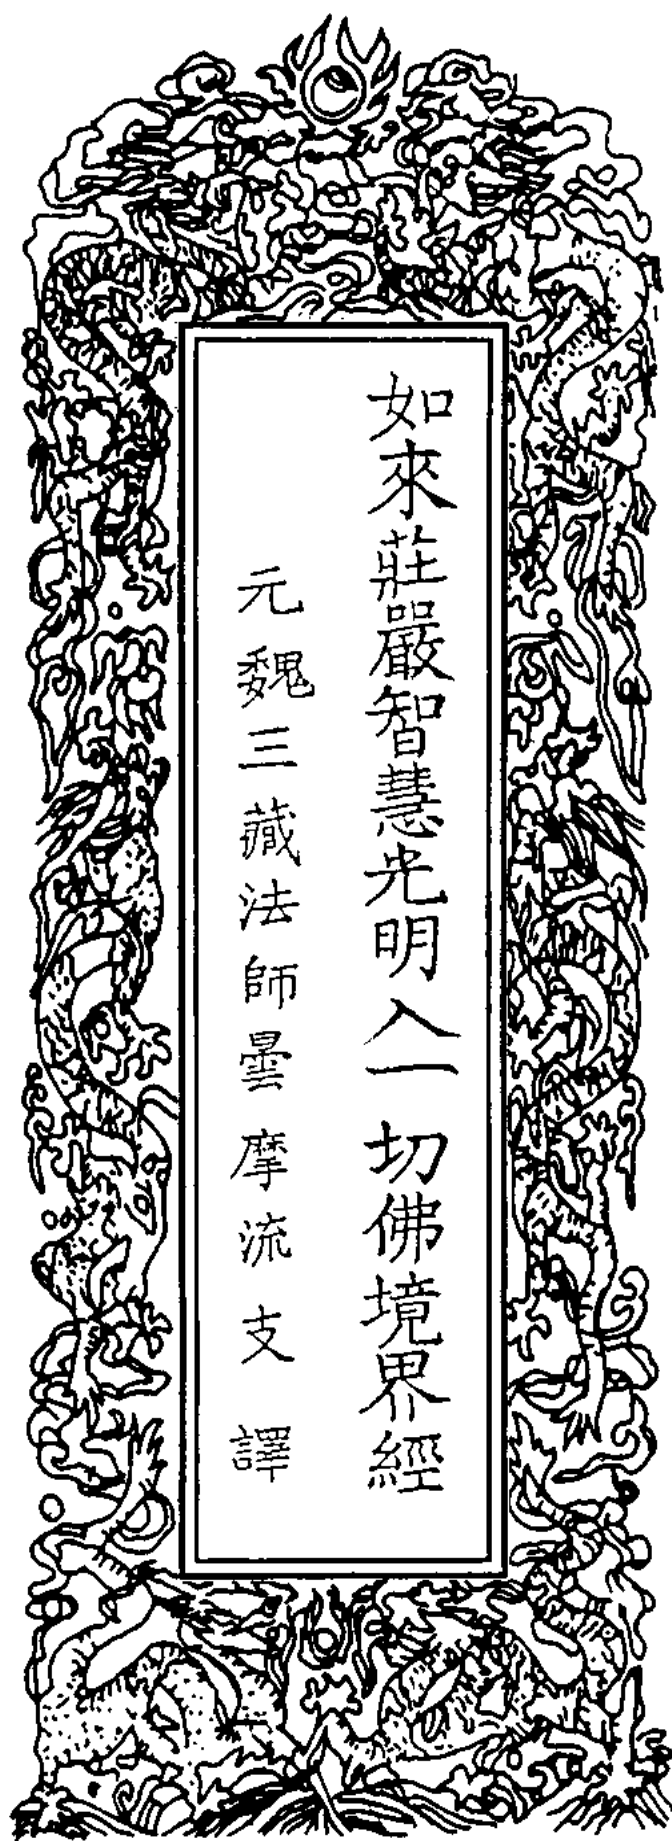 如來莊嚴智慧光明入一切佛境界經
元魏三藏法師曇摩流支譯